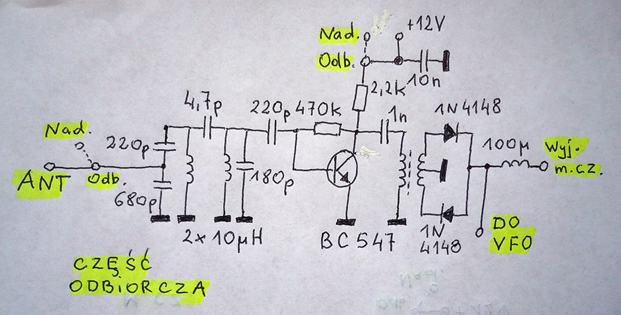 Nad.
+12V
Odb.
10n
2,2k
4,7p
220p
470k
1n
1N4148
Nad.
220p
100µ
Wyj.
m.cz.
ANT
Odb.
680p
180p
2x10µH
BC547
1N
4148
DO
VFO
CZĘŚĆ
ODBIORCZA